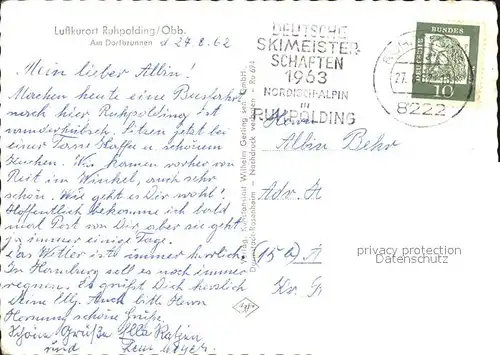 Luftkurort Ruhpolding/Obb.
Am Dorfbrunnen
d 27.8.62
Mein lieber Albin!
Machen heute eine Busfahrt
nach hier Ruhpolding ist
wunderhübsch. Sitzen jetzt bei
einer Tasse Kaffee u. schönem
Kuchen. Wir kamen vorher von
Reit im Winkel, auch sehr
schön. Wie geht es Dir wohl?
Hoffentlich bekomme ich bald
mal Post von Dir aber wie geht
ja immer einige Tage.
Das Wetter ist immer herrlich
In Hamburg soll es noch immer
regnen. Es grüßt Dich herzlich
Deine Elly. Auch bitte Herrn
schöne Grüße.
Schöne Grüße Ella
und
Verlag: Kunstanstalt Wilhelm Gerling sen. GmbH.
Rosenheim - Nachdruck verboten - Ru 674
Agfa
DEUTSCHE
SKIMEISTER-
SCHAFTEN
1963
NORDISCH-ALPIN
IN
RUHPOLDING
27.
8222
DEUTSCHE
BUNDES
10
Herrn
Albin Behr
Adr. A
(15a) A
Kr. G
privacy protection
Datenschutz